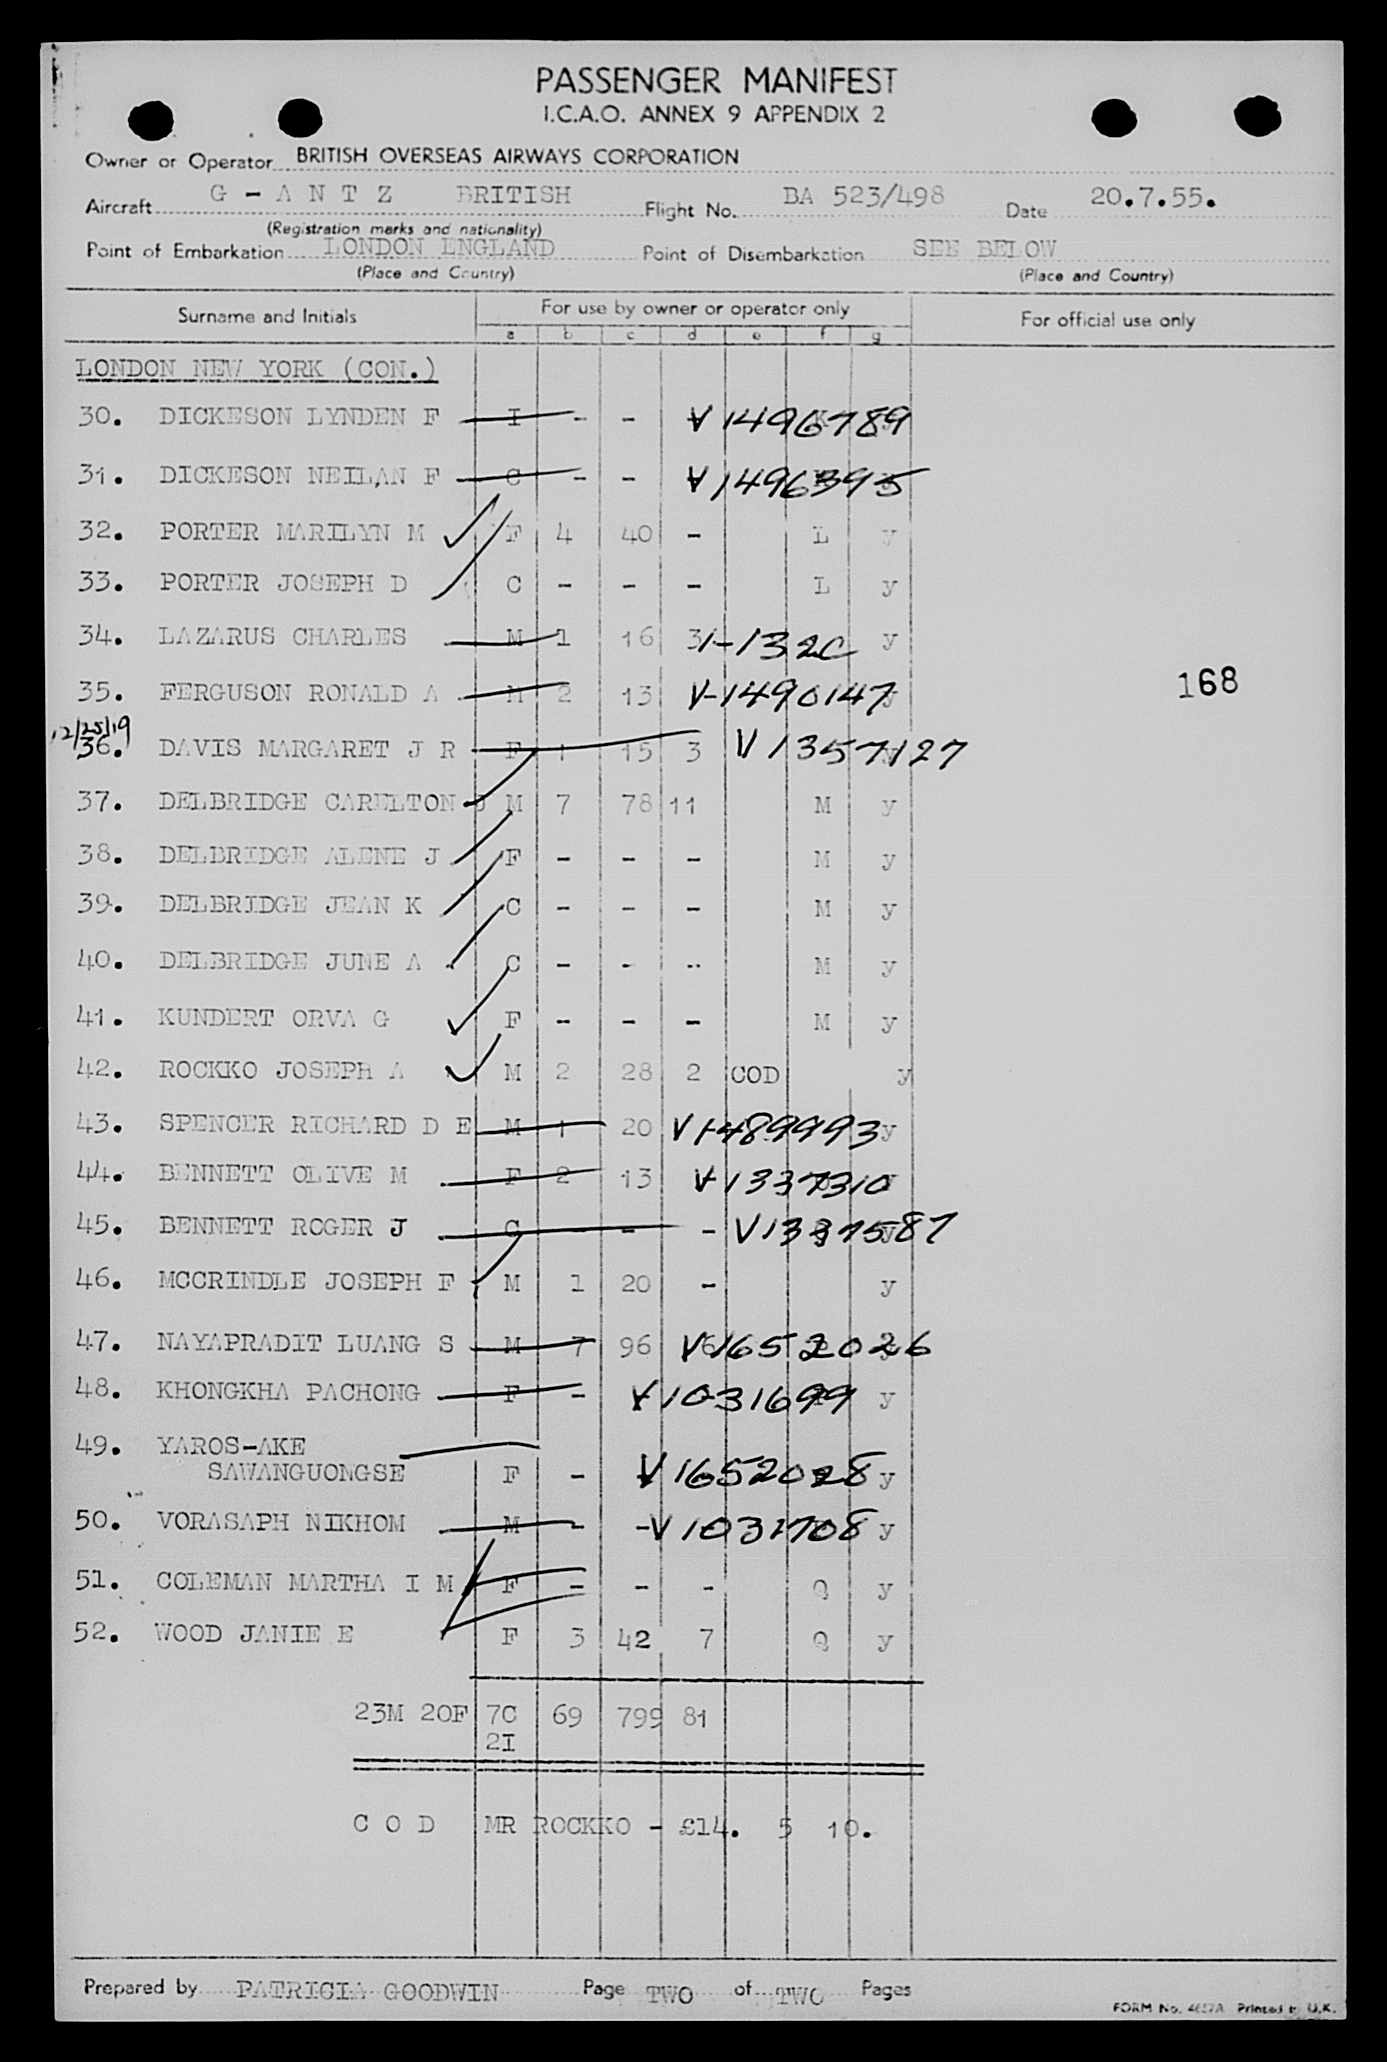 PASSENGER MANIFEST
I.C.A.O. ANNEX 9 APPENDIX 2
Owner or Operator BRITISH OVERSEAS AIRWAYS CORPORATION
Aircraft G - A N T Z BRITISH Flight No. BA 523/498 Date 20.7.55.
(Registration marks and nationality)
Point of Embarkation LONDON ENGLAND Point of Disembarkation SEE BELOW
(Place and Country) (Place and Country)
Surname and Initials For use by owner or operator only For official use only
a b c d e f g
LONDON NEW YORK (CON.)
30. DICKESON LYNDEN F I - - V 1496789
31. DICKESON NEILAN F C - - V 1496395
32. PORTER MARILYN M F 4 40 - L y
33. PORTER JOSEPH D C - - - L y
34. LAZARUS CHARLES M 1 16 3 y
168
35. FERGUSON RONALD A M 2 13 V-1490147 y
12/25/19
36. DAVIS MARGARET J R F 1 15 3 V 1357127
37. DELBRIDGE CARELTON J M 7 78 11 M y
38. DELBRIDGE ALENE J F - - - M y
39. DELBRIDGE JEAN K C - - - M y
40. DELBRIDGE JUNE A C - - - M y
41. KUNDERT ORVA G F - - - M y
42. ROCKKO JOSEPH A M 2 28 2 COD y
43. SPENCER RICHARD D E M 1 20 V 1489993 y
44. BENNETT OLIVE M F 2 13 V 1337310
45. BENNETT ROGER J C - - V 1337587
46. MCCRINDLE JOSEPH F M 1 20 - y
47. NAYAPRADIT LUANG S M 7 96 6 V 1652026 y
48. KHONGKHA PACHONG F - V 1031699 y
49. YAROS-AKE
SAWANGUONGSE F - V 1652028 y
50. VORASAPH NIKHOM M - - V 1031708 y
51. COLEMAN MARTHA I M F - - - Q y
52. WOOD JANIE E F 3 42 7 Q y
23M 20F 7C 69 799 81
2I
C O D MR ROCKKO - £14. 5 10.
Prepared by PATRICIA GOODWIN Page TWO of TWO Pages
FORM No. Printed in U.K.